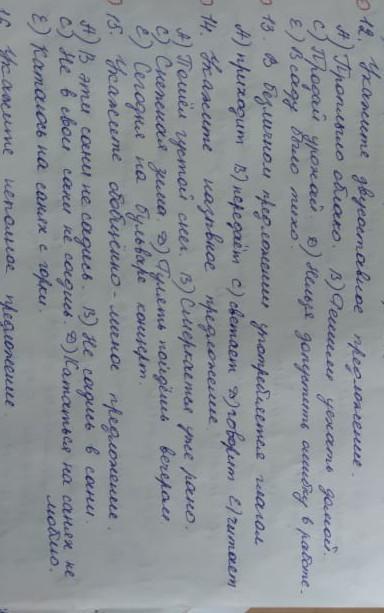 12. Укажите двусоставное предложение.
А) Проплыло облако. В) Решили уехать домой.
С) Продай урожай. Д) Нельзя допустить ошибку в работе.
Е) В саду было тихо.
13. В безличном предложении употребляется глагол
А) приходит В) передаёт С) светает Д) говорит Е) читает
14. Укажите назывное предложение.
А) Пошёл густой снег. В) Смеркается уже рано.
С) Снежная зима. Д) Гулять пойдёшь вечером.
Е) Сегодня на бульваре концерт.
15. Укажите обобщённо-личное предложение.
А) В эти сани не садись. В) Не садись в сани.
С) Не в свои сани не садись. Д) Кататься на санях не люблю.
Е) Катаюсь на санях с горы.
16. Укажите неполное предложение.